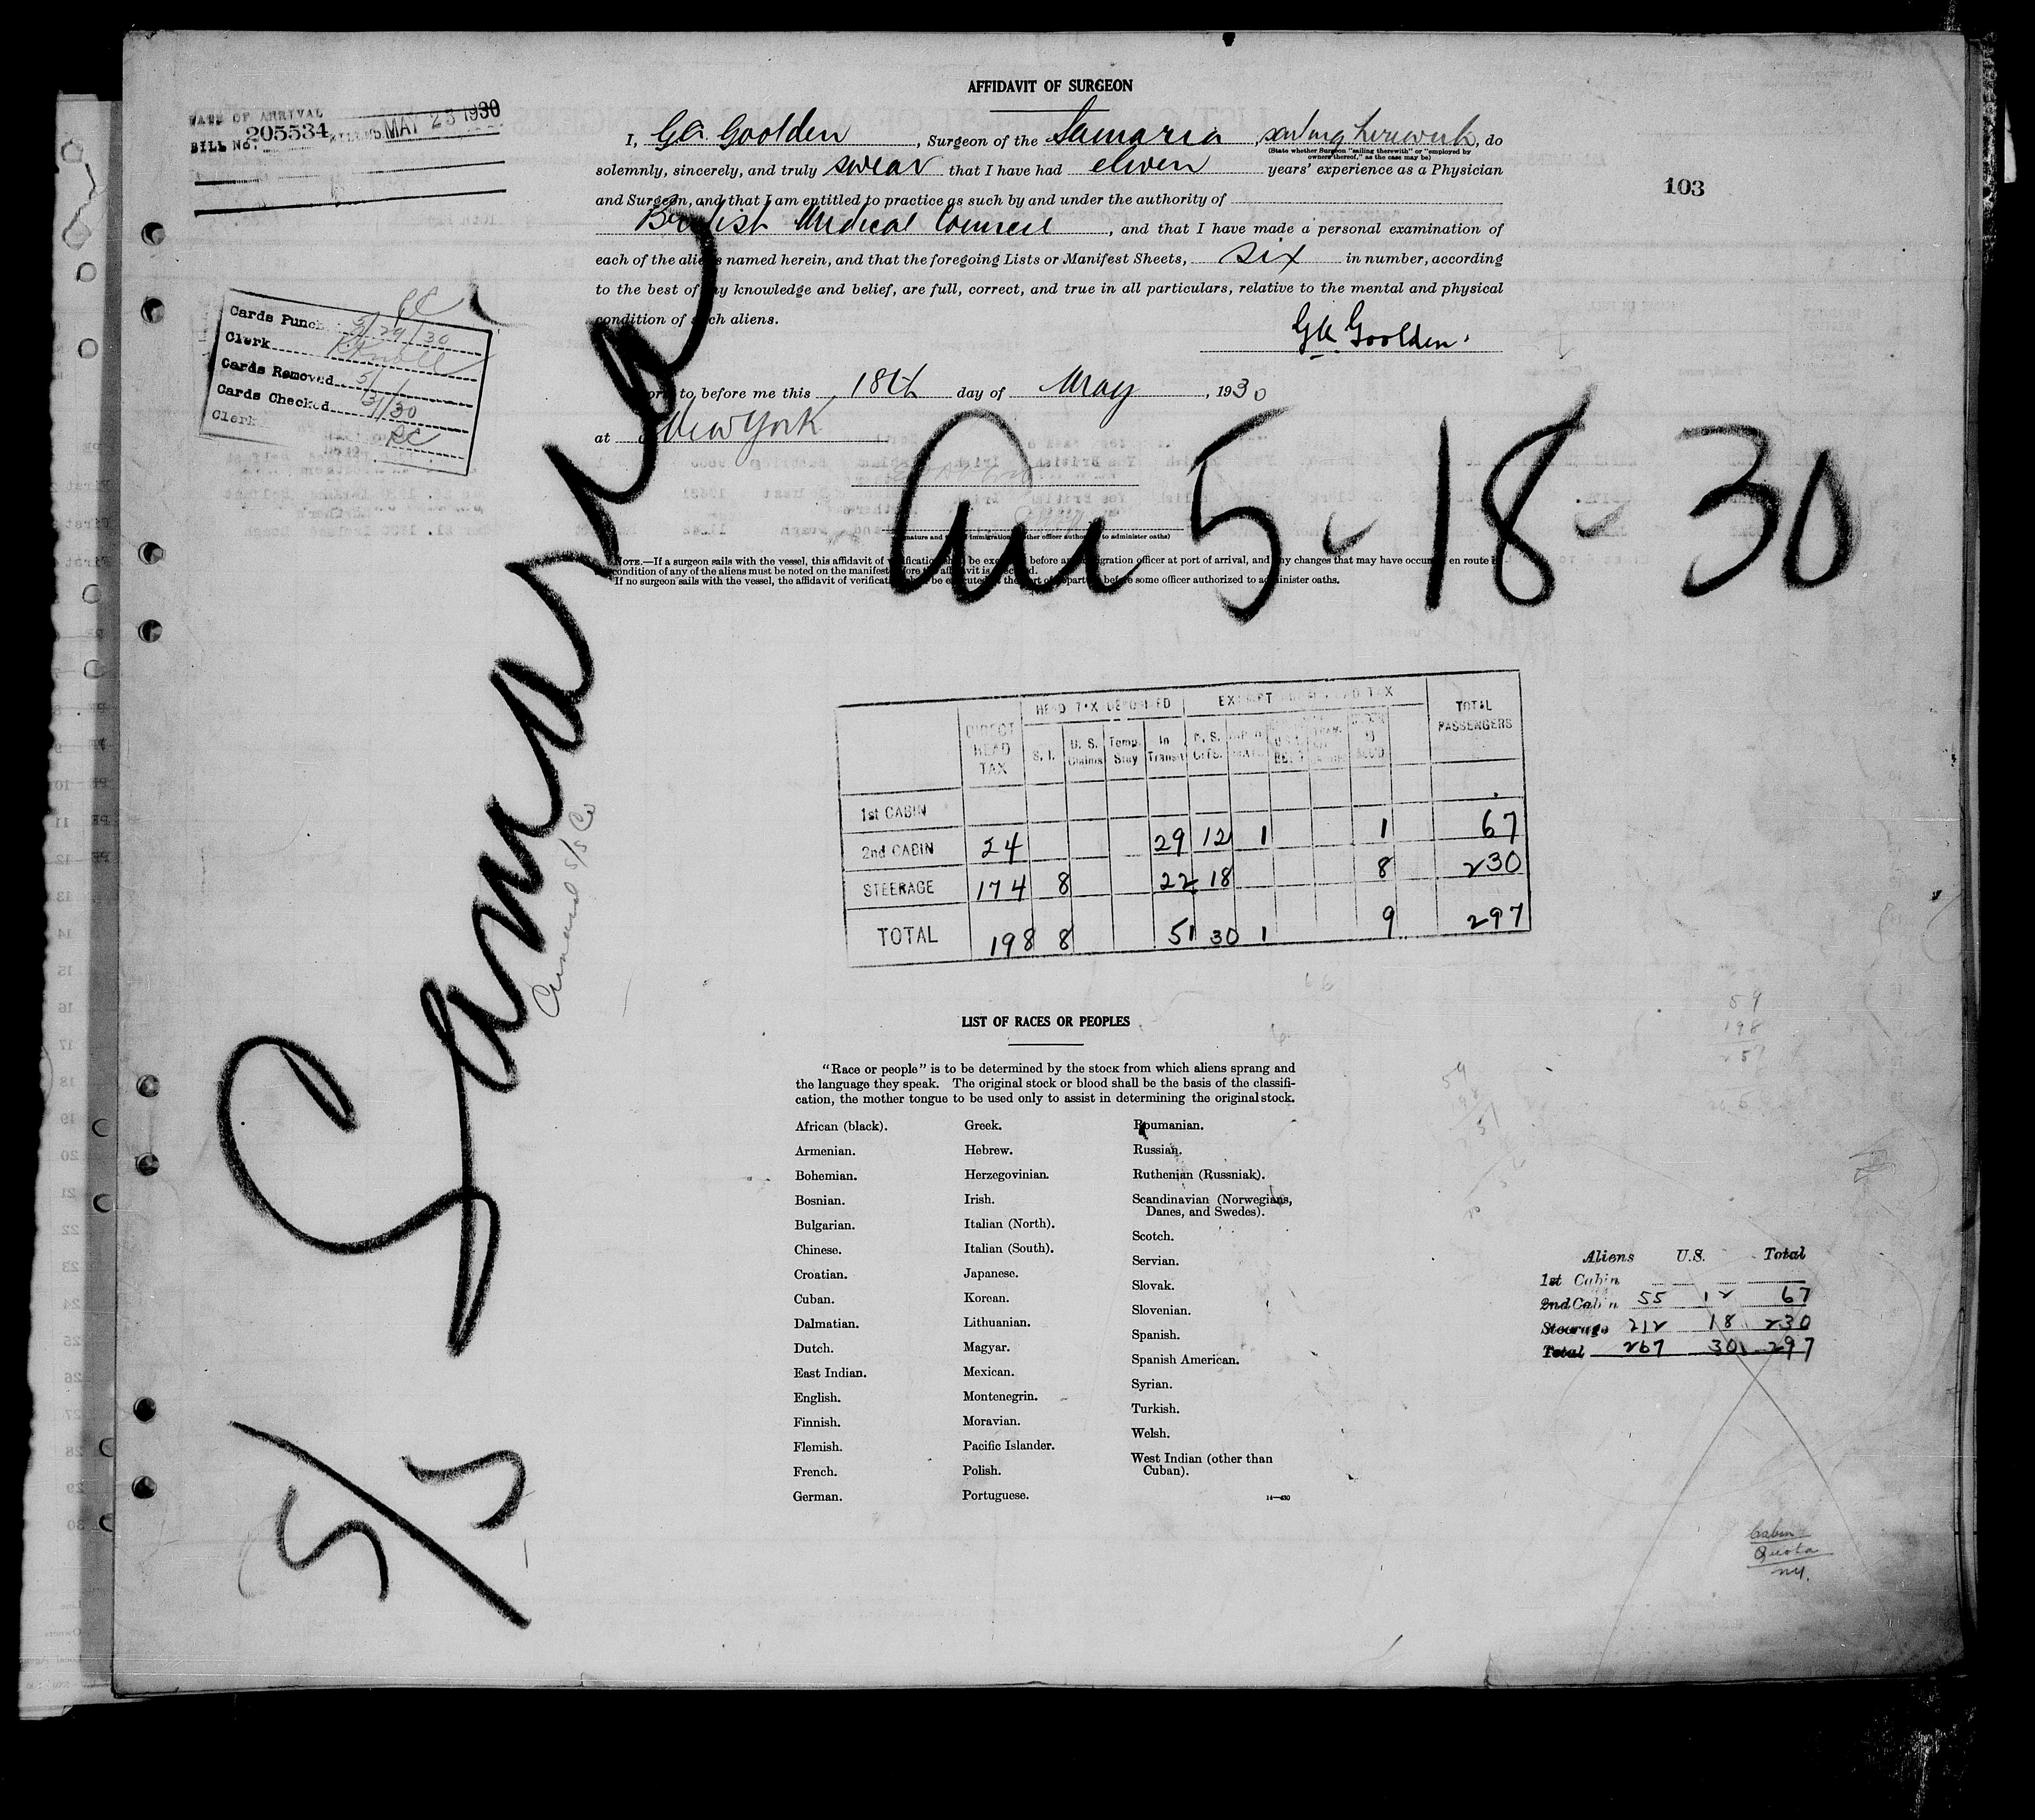 AFFIDAVIT OF SURGEON
DATE OF ARRIVAL
BILL No. 205534 MAY 23 1930
103
I, G.A. Goolden, Surgeon of the Samaria, sailing herewith, do
(State whether Surgeon "sailing therewith" or "employed by
owners thereof," as the case may be)
solemnly, sincerely, and truly swear that I have had eleven years' experience as a Physician
and Surgeon, and that I am entitled to practice as such by and under the authority of
British Medical Council, and that I have made a personal examination of
each of the aliens named herein, and that the foregoing Lists or Manifest Sheets, six in number, according
to the best of my knowledge and belief, are full, correct, and true in all particulars, relative to the mental and physical
condition of such aliens.
G A Goolden.
to before me this 18th day of May, 1930
at New York
Cards Punc 5/29/30
Clerk
Cards Removed 5/
Cards Checked 31/30
Clerk RC
Samaria
Cunard S/S Co
5/5
Arr 5-18-30
NOTE.—If a surgeon sails with the vessel, this affidavit of verification shall be executed before an immigration officer at port of arrival, and any changes that may have occurred en route in
condition of any of the aliens must be noted on the manifest before the affidavit is executed.
If no surgeon sails with the vessel, the affidavit of verification must be executed at the port of departure before some officer authorized to administer oaths.
HEAD TAX DEPOSITED EXEMPT HEAD TAX
DIRECT HEAD TAX S. I. U. S. Claims Temp. Stay In Transit U. S. CITS. TOTAL PASSENGERS
1st CABIN
2nd CABIN 24 29 12 1 1 67
STEERAGE 174 8 22 18 8 230
TOTAL 198 8 51 30 1 9 297
59
198
257
LIST OF RACES OR PEOPLES
"Race or people" is to be determined by the stock from which aliens sprang and
the language they speak. The original stock or blood shall be the basis of the classifi-
cation, the mother tongue to be used only to assist in determining the original stock.
African (black).
Armenian.
Bohemian.
Bosnian.
Bulgarian.
Chinese.
Croatian.
Cuban.
Dalmatian.
Dutch.
East Indian.
English.
Finnish.
Flemish.
French.
German.
Greek.
Hebrew.
Herzegovinian.
Irish.
Italian (North).
Italian (South).
Japanese.
Korean.
Lithuanian.
Magyar.
Mexican.
Montenegrin.
Moravian.
Pacific Islander.
Polish.
Portuguese.
Roumanian.
Russian.
Ruthenian (Russniak).
Scandinavian (Norwegians,
Danes, and Swedes).
Scotch.
Servian.
Slovak.
Slovenian.
Spanish.
Spanish American.
Syrian.
Turkish.
Welsh.
West Indian (other than
Cuban).
14—430
Aliens U.S. Total
1st Cabin
2nd Cabin 55 12 67
Steerage 212 18 230
Total 267 30 297
Cabin
Quota
NY.